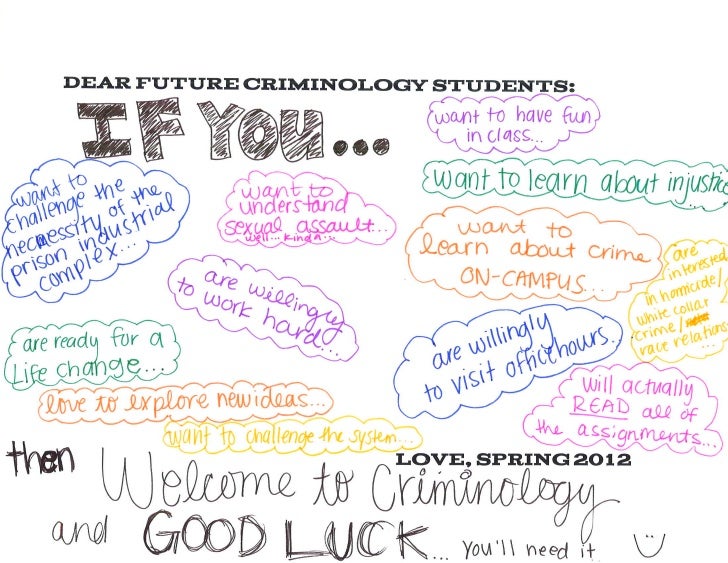 DEAR FUTURE CRIMINOLOGY STUDENTS:
IF YOU...
want to have fun
in class...
want to
challenge the
necessity of the
prison industrial
complex...
want to
understand
sexual assault...
well... kinda...
want to learn about injustice
want to
learn about crime
ON-CAMPUS...
are
interested
in homicide/
white collar
crime/
race relations
...
are willingly
to work
hard...
are ready for a
life change...
are willingly
to visit office hours...
love to explore new ideas...
will actually
READ all of
the assignments...
want to challenge the system...
LOVE, SPRING 2012
then Welcome to Criminology
and GOOD LUCK... You'll need it